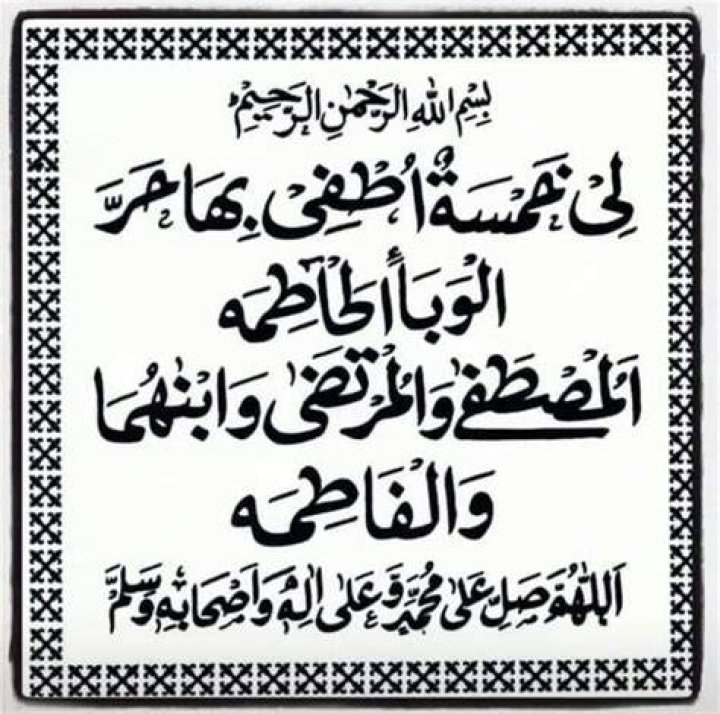 بِسْمِ اللهِ الرَّحْمٰنِ الرَّحِيْمِ
لِىْ خَمْسَةٌ اُطْفِىْ بِهَا حَرَّ
الْوَبَأِ الْحَاطِمَه
اَلْمُصْطَفٰى وَالْمُرْتَضٰى وَابْنٰهُمَا
وَالْفَاطِمَه
اَللّٰهُمَّ صَلِّ عَلٰى مُحَمَّدٍ وَّ عَلٰى اٰلِهٖ وَاَصْحَابِهٖ وَسَلِّمْ